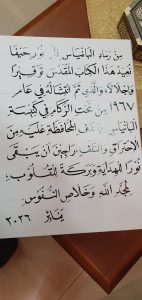 مِن رمادِ البانياس إلى نور حنيفا
نُعيدُ هذا الكتابَ المقدّسَ توقيرًا
وإجلالًا، والذي تمَّ انتشالُه في عام
١٩٦٧ من تحت الركام في كنيسة
البانياس بهدف المحافظة عليه من
الاحتراق والتلف. راجين أن يبقى
نورًا للهداية وبركةً للقلوب،
لمجد الله وخلاص النفوس.
يناير ٢٠٢٦